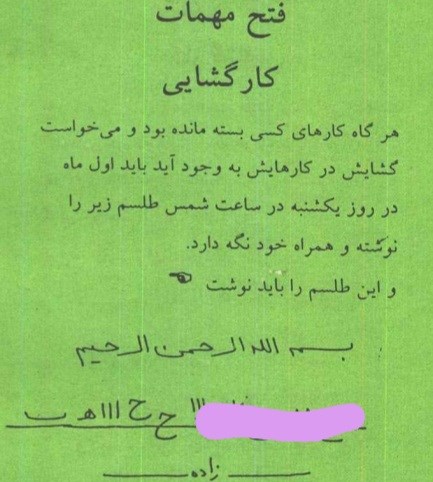 فتح مهمات
کارگشایی
هر گاه کارهای کسی بسته مانده بود و می‌خواست
گشایش در کارهایش به وجود آید باید اول ماه
در روز یکشنبه در ساعت شمس طلسم زیر را
نوشته و همراه خود نگه دارد.
و این طلسم را باید نوشت
بسم الله الرحمن الرحیم
ح ح ااا ه ب
زاده